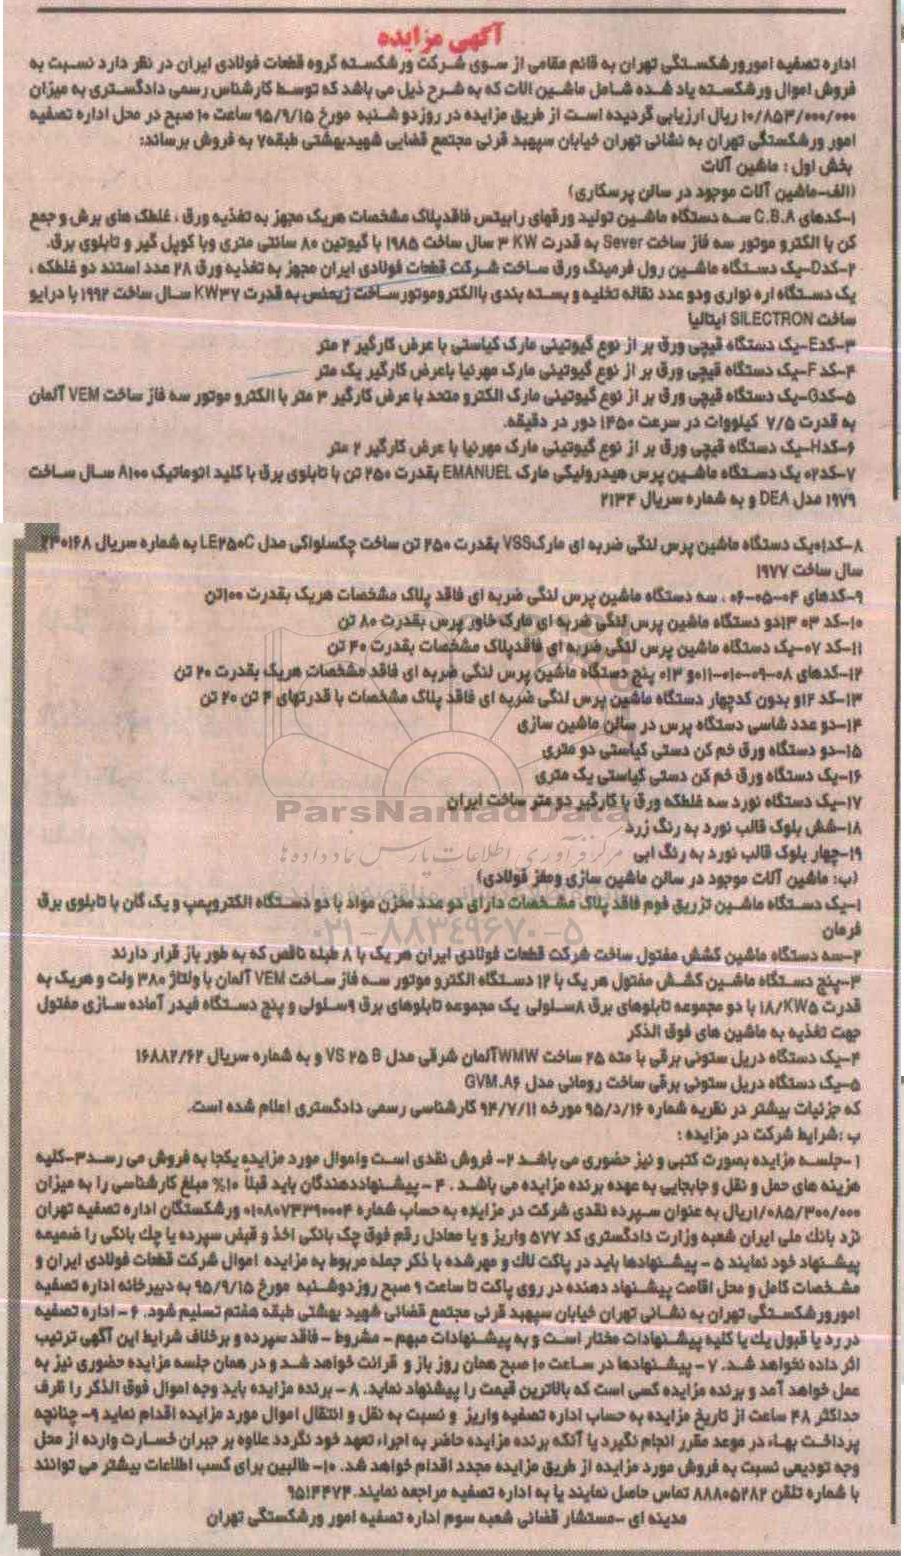 آگهی مزایده
اداره تصفیه امورورشکستگی تهران به قائم مقامی از سوی شرکت ورشکسته گروه قطعات فولادی ایران در نظر دارد نسبت به
فروش اموال ورشکسته یاد شده شامل ماشین الات که به شرح ذیل می باشد که توسط کارشناس رسمی دادگستری به میزان
۱۰/۸۵۳/۰۰۰/۰۰۰ ریال ارزیابی گردیده است از طریق مزایده در روزدو شنبه مورخ ۹۵/۹/۱۵ ساعت ۱۰ صبح در محل اداره تصفیه
امور ورشکستگی تهران به نشانی تهران خیابان سپهبد قرنی مجتمع قضایی شهیدبهشتی طبقه۷ به فروش برساند:
بخش اول : ماشین آلات
(الف-ماشین آلات موجود در سالن پرسکاری)
۱-کدهای C.B.A سه دستگاه ماشین تولید ورقهای رابیتس فاقدپلاک مشخصات هریک مجهز به تغذیه ورق ، غلطک های برش و جمع
کن با الکترو موتور سه فاز ساخت Sever به قدرت ۳ KW سال ساخت ۱۹۸۵ با گیوتین ۸۰ سانتی متری وبا کوپل گیر و تابلوی برق.
۲-کدD-یک دستگاه ماشین رول فرمینگ ورق ساخت شرکت قطعات فولادی ایران مجهز به تغذیه ورق ۲۸ عدد استند دو غلطکه ،
یک دستگاه اره نواری ودو عدد نقاله تخلیه و بسته بندی باالکتروموتورساخت زیمنس به قدرت KW۳۷ سال ساخت ۱۹۹۲ با درایو
ساخت SILECTRON ایتالیا
۳-کدE-یک دستگاه قیچی ورق بر از نوع گیوتینی مارک کیاستی با عرض کارگیر ۲ متر
۴-کد F-یک دستگاه قیچی ورق بر از نوع گیوتینی مارک مهرنیا باعرض کارگیر یک متر
۵-کدG-یک دستگاه قیچی ورق بر از نوع گیوتینی مارک الکترو متحد با عرض کارگیر ۳ متر با الکترو موتور سه فاز ساخت VEM آلمان
به قدرت ۷/۵ کیلووات در سرعت ۱۴۵۰ دور در دقیقه.
۶-کدH-یک دستگاه قیچی ورق بر از نوع گیوتینی مارک مهرنیا با عرض کارگیر ۲ متر
۷-کد۰۲ یک دستگاه ماشین پرس هیدرولیکی مارک EMANUEL بقدرت ۲۵۰ تن با تابلوی برق با کلید اتوماتیک A۱۰۰ سال ساخت
۱۹۷۹ مدل DEA و به شماره سریال ۲۱۳۴
۸-کد۰۱یک دستگاه ماشین پرس لنگی ضربه ای مارکVSS بقدرت ۲۵۰ تن ساخت چکسلواکی مدل LE۲۵۰C به شماره سریال ۲۳۰۱۶۸
سال ساخت ۱۹۷۷
۹-کدهای ۰۴-۰۵-۰۶ ، سه دستگاه ماشین پرس لنگی ضربه ای فاقد پلاک مشخصات هریک بقدرت ۱۰۰تن
۱۰-کد ۰۳ ۱۳دو دستگاه ماشین پرس لنگی ضربه ای مارک خاور پرس بقدرت ۸۰ تن
۱۱-کد ۰۷-یک دستگاه ماشین پرس لنگی ضربه ای فاقدپلاک مشخصات بقدرت ۴۰ تن
۱۲-کدهای ۰۸-۰۹-۰۱۰-۰۱۱و ۰۱۳ پنج دستگاه ماشین پرس لنگی ضربه ای فاقد مشخصات هریک بقدرت ۲۰ تن
۱۳-کد ۱۲و بدون کدچهار دستگاه ماشین پرس لنگی ضربه ای فاقد پلاک مشخصات با قدرتهای ۴ تن ۲۰ تن
۱۴-دو عدد شاسی دستگاه پرس در سالن ماشین سازی
۱۵-دو دستگاه ورق خم کن دستی کیاستی دو متری
۱۶-یک دستگاه ورق خم کن دستی کیاستی یک متری
۱۷-یک دستگاه نورد سه غلطکه ورق با کارگیر دو متر ساخت ایران
ParsNamadData
۱۸-شش بلوک قالب نورد به رنگ زرد
۱۹-چهار بلوک قالب نورد به رنگ ابی
مرکز فرآوری اطلاعات پارس نماد داده ها
(ب: ماشین آلات موجود در سالن ماشین سازی ومغز فولادی)
۱-یک دستگاه ماشین تزریق فوم فاقد پلاک مشخصات دارای دو عدد مخزن مواد با دو دستگاه الکتروپمپ و یک گان با تابلوی برق
فرمان
۰۲۱-۸۸۳۴۹۶۷۰-۵
۲-سه دستگاه ماشین کشش مفتول ساخت شرکت قطعات فولادی ایران هر یک با ۸ طبله ناقص که به طور باز قرار دارند
۳-پنج دستگاه ماشین کشش مفتول هر یک با ۱۲ دستگاه الکترو موتور سه فاز ساخت VEM آلمان با ولتاژ ۳۸۰ ولت و هریک به
قدرت ۱۸/KW۵ با دو مجموعه تابلوهای برق ۸سلولی یک مجموعه تابلوهای برق ۹سلولی و پنج دستگاه فیدر آماده سازی مفتول
جهت تغذیه به ماشین های فوق الذکر
۴-یک دستگاه دریل ستونی برقی با مته ۲۵ ساخت WMWآلمان شرقی مدل VS ۲۵ B و به شماره سریال ۱۶۸۸۲/۶۲
۵-یک دستگاه دریل ستونی برقی ساخت رومانی مدل GVM.A۶
که جزئیات بیشتر در نظریه شماره ۱۶/د/۹۵ مورخه ۹۴/۷/۱۱ کارشناسی رسمی دادگستری اعلام شده است.
ب :شرایط شرکت در مزایده :
۱ -جلسه مزایده بصورت کتبی و نیز حضوری می باشد ۲- فروش نقدی است واموال مورد مزایده یکجا به فروش می رسد۳-کلیه
هزینه های حمل و نقل و جابجایی به عهده برنده مزایده می باشد . ۴ - پیشنهاددهندگان باید قبلا ۱۰% مبلغ کارشناسی را به میزان
۱/۰۸۵/۳۰۰/۰۰۰ریال به عنوان سپرده نقدی شرکت در مزایده به حساب شماره ۰۱۰۸۰۷۳۳۹۰۰۰۴ ورشکستگان اداره تصفیه تهران
نزد بانك ملی ایران شعبه وزارت دادگستری کد ۵۷۷ واریز و یا معادل رقم فوق چک بانکی اخذ و قبض سپرده یا چك بانکی را ضمیمه
پیشنهاد خود نمایند ۵ - پیشنهادها باید در پاکت لاك و مهرشده با ذکر جمله مربوط به مزایده اموال شرکت قطعات فولادی ایران و
مشخصات کامل و محل اقامت پیشنهاد دهنده در روی پاکت تا ساعت ۹ صبح روزدوشنبه مورخ ۹۵/۹/۱۵ به دبیرخانه اداره تصفیه
امورورشکستگی تهران به نشانی تهران خیابان سپهبد قرنی مجتمع قضائی شهید بهشتی طبقه هفتم تسلیم شود. ۶ - اداره تصفیه
در رد یا قبول یك یا کلیه پیشنهادات مختار است و به پیشنهادات مبهم - مشروط - فاقد سپرده و برخلاف شرایط این آگهی ترتیب
اثر داده نخواهد شد. ۷ - پیشنهادها در ساعت ۱۰ صبح همان روز باز و قرائت خواهد شد و در همان جلسه مزایده حضوری نیز به
عمل خواهد آمد و برنده مزایده کسی است که بالاترین قیمت را پیشنهاد نماید. ۸ - برنده مزایده باید وجه اموال فوق الذکر را ظرف
حداکثر ۴۸ ساعت از تاریخ مزایده به حساب اداره تصفیه واریز و نسبت به نقل و انتقال اموال مورد مزایده اقدام نماید ۹- چنانچه
پرداخت بهاء در موعد مقرر انجام نگیرد یا آنکه برنده مزایده حاضر به اجراء تعهد خود نگردد علاوه بر جبران خسارت وارده از محل
وجه تودیعی نسبت به فروش مورد مزایده از طریق مزایده مجدد اقدام خواهد شد. ۱۰- طالبین برای کسب اطلاعات بیشتر می توانند
با شماره تلفن ۸۸۸۰۵۲۸۲ تماس حاصل نمایند یا به اداره تصفیه مراجعه نمایند.۹۵۱۴۴۷۴
مدینه ای -مستشار قضائی شعبه سوم اداره تصفیه امور ورشکستگی تهران